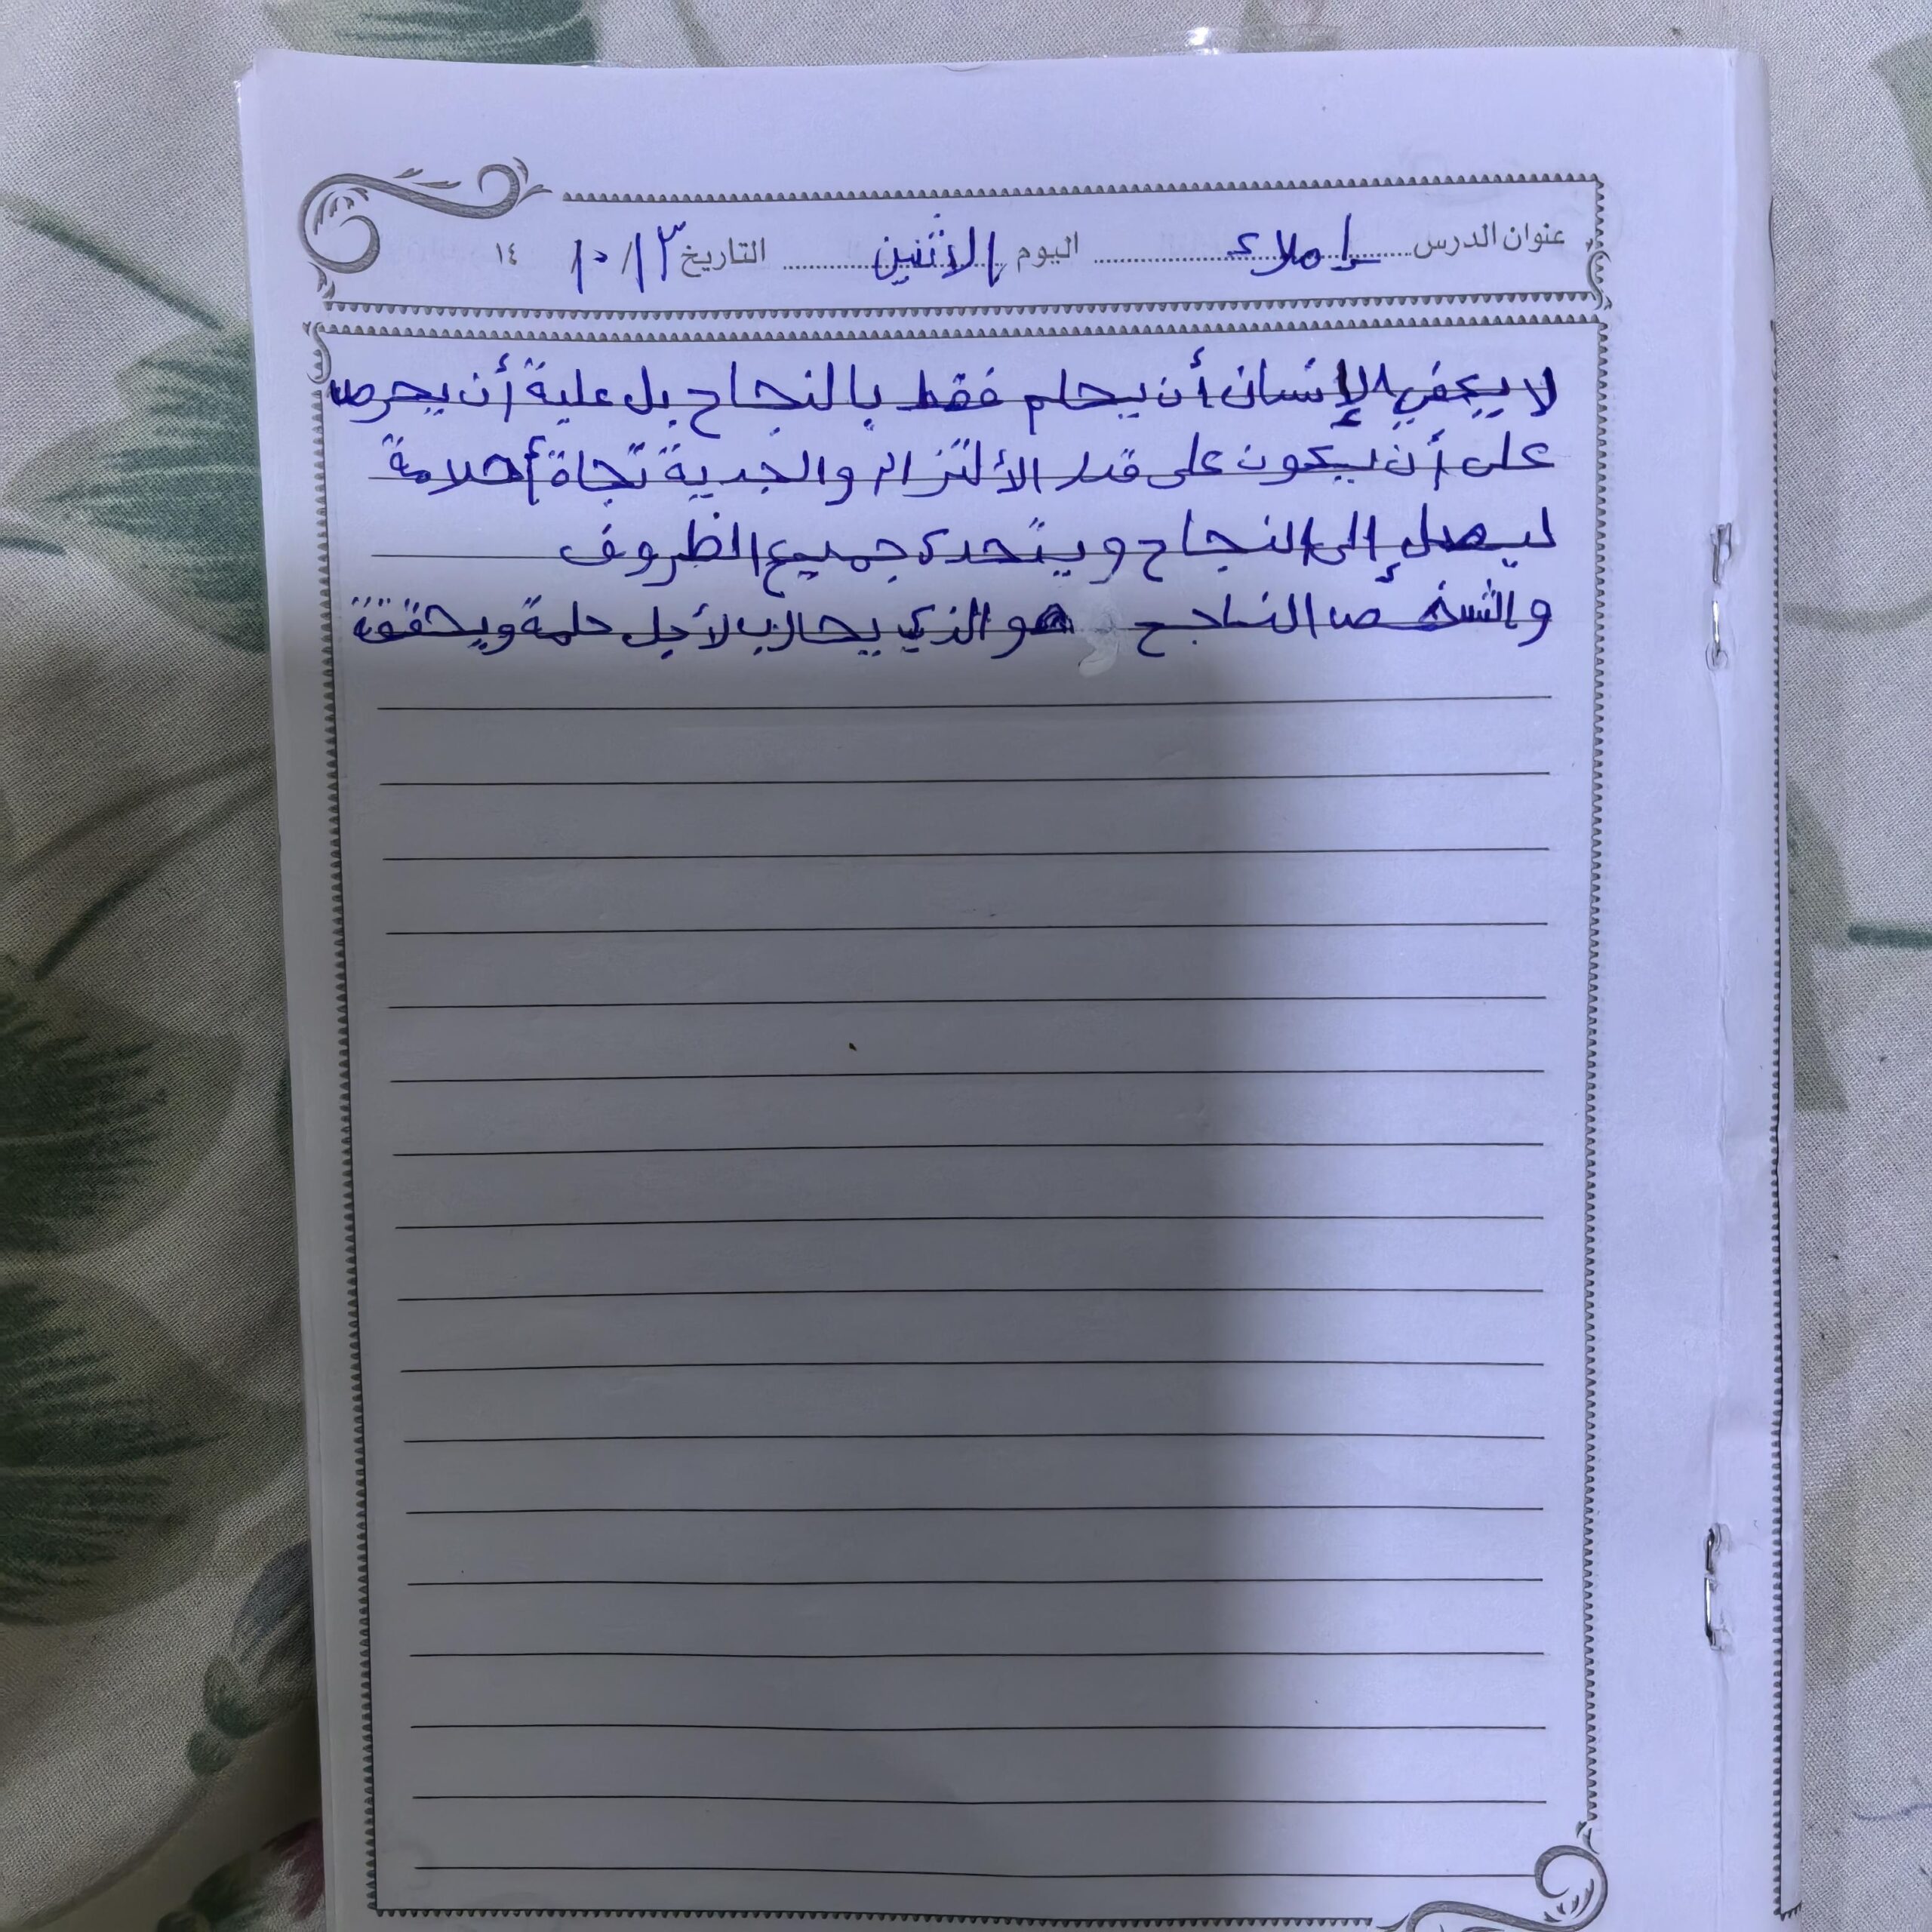 عنوان الدرس إملاء اليوم الاثنين التاريخ ١٣/١٠ ١٤
لا يكفي الإنسان أن يحلم فقط بالنجاح بل علية أن يحرص
على أن يكون على قدر الألتزام والجدية تجاة أحلامة
ليصل إلى النجاح ويتحدى جميع الظروف
والشخص الناجح هو الذي يحارب لأجل حلمة ويحققة